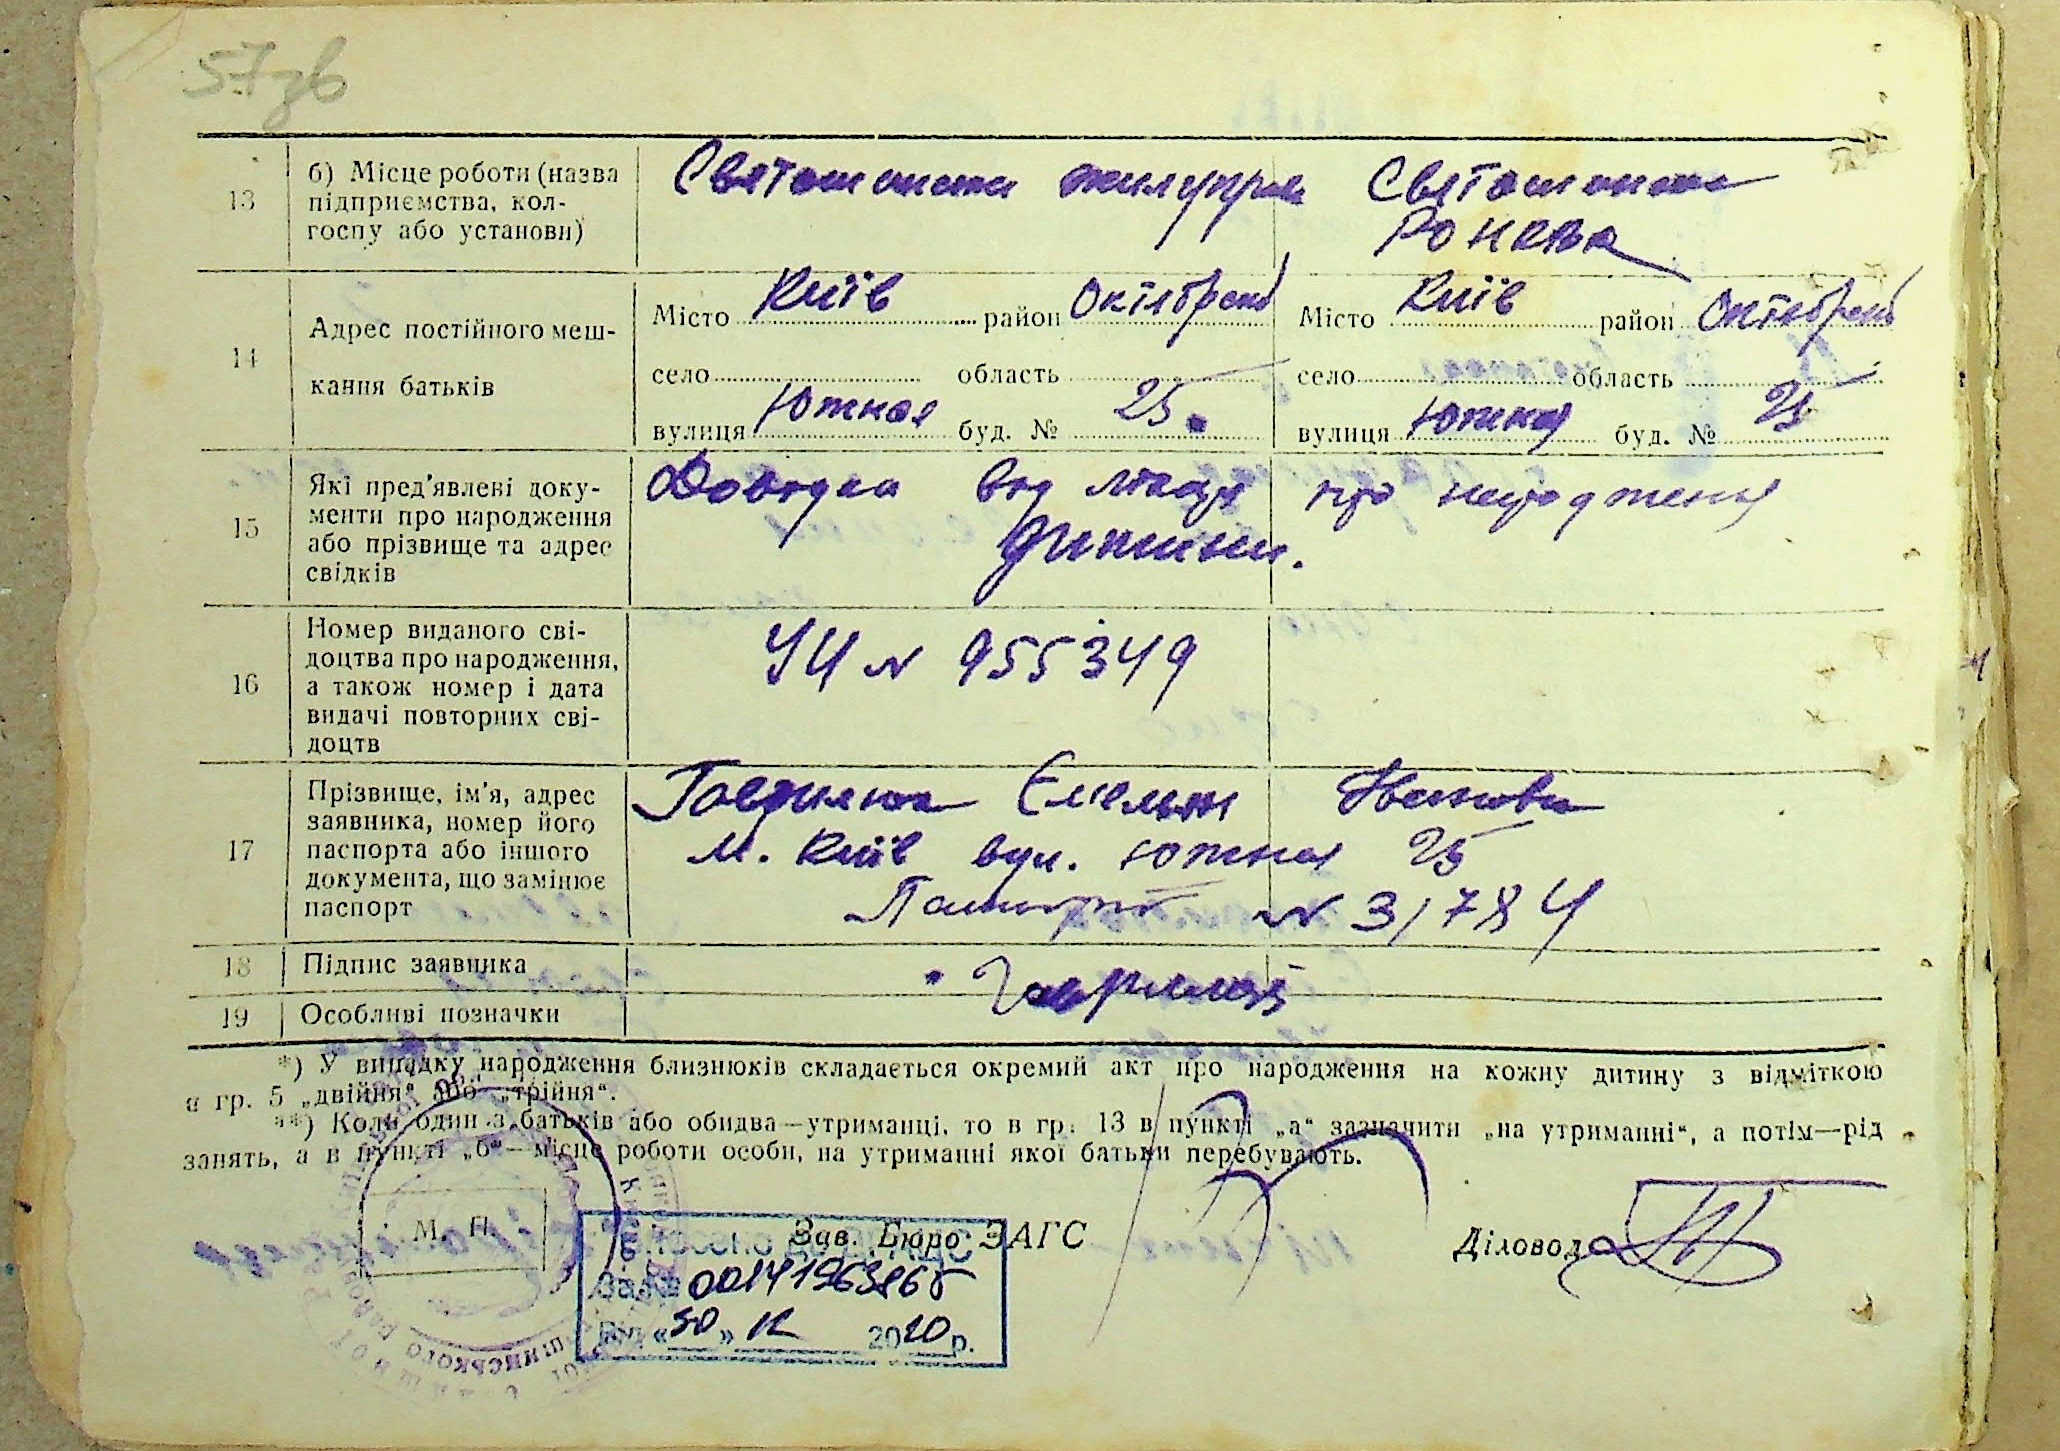 57зв
13
б) Місце роботи (назва
підприємства, кол-
госпу або установи)
Святошинск жилуправ
Святошинск
14
Адрес постійного меш-
кання батьків
Місто Київ район Октябрськ
село область
вулиця Южная буд. № 25.
Місто Київ район Октябрськ
село область
вулиця Южная буд. № 25
15
Які пред'явлені доку-
менти про народження
або прізвище та адрес
свідків
Довідка від лікаря про народження
дитини.
16
Номер виданого сві-
доцтва про народження,
а також номер і дата
видачі повторних сві-
доцтв
УЧ № 955349
17
Прізвище, ім'я, адрес
заявника, номер його
паспорта або іншого
документа, що замінює
паспорт
Гаврилюк Ємельян
м. Київ вул. Южная 25
Паспорт № 31784
18
Підпис заявника
19
Особливі позначки
*) У випадку народження близнюків складається окремий акт про народження на кожну дитину з відміткою
в гр. 5 „двійня“ або „трійня“.
**) Коли один з батьків або обидва—утриманці, то в гр. 13 в пункті „а“ зазначити „на утриманні“, а потім—рід
занять, а в пункті „б“—місце роботи особи, на утриманні якої батьки перебувають.
М. П.
Зав. Бюро ЗАГС
Діловод
Внесено до ДРАЦС
За № 00141963865
Від «30» 12 2020 р.